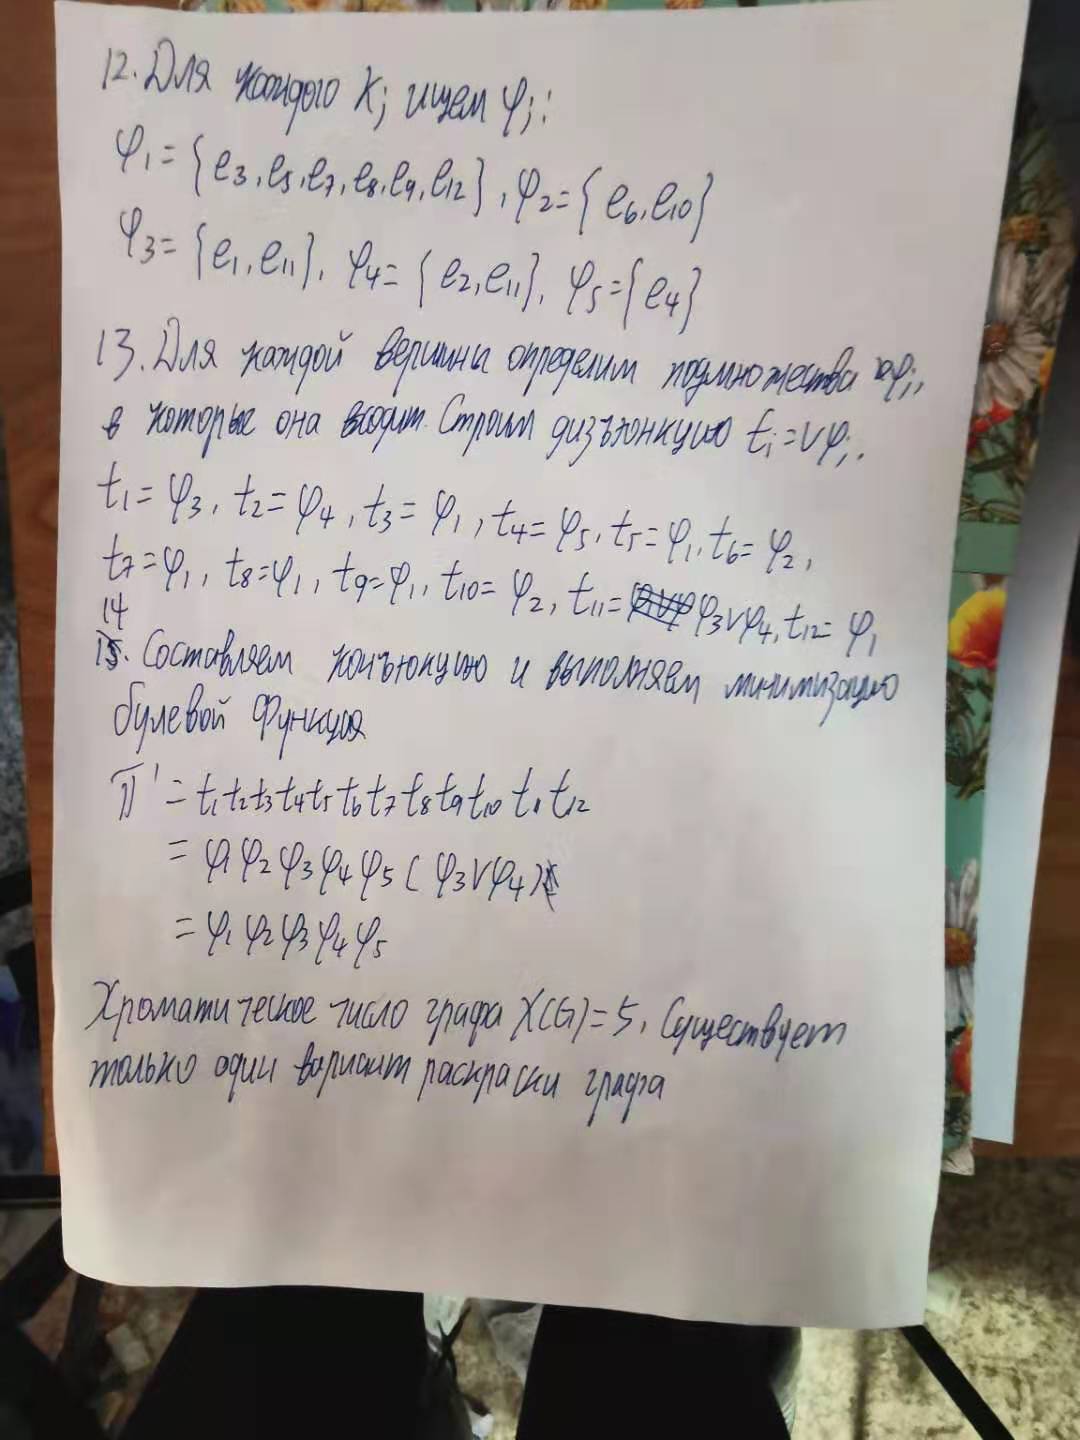 12. Для каждого K_j ищем φ_j:
φ₁ = {e₃, e₅, e₇, e₈, e₉, e₁₂}, φ₂ = {e₆, e₁₀}
φ₃ = {e₁, e₁₁}, φ₄ = {e₂, e₁₁}, φ₅ = {e₄}
13. Для каждой вершины определим подмножества φ_j,
в которые она входит. Строим дизъюнкцию t_i = ∨φ_j.
t₁ = φ₃, t₂ = φ₄, t₃ = φ₁, t₄ = φ₅, t₅ = φ₁, t₆ = φ₂,
t₇ = φ₁, t₈ = φ₁, t₉ = φ₁, t₁₀ = φ₂, t₁₁ = φ₃∨φ₄, t₁₂ = φ₁
14. Составляем конъюкцию и выполняем минимизацию
булевой функция
П' = t₁t₂t₃t₄t₅t₆t₇t₈t₉t₁₀t₁₁t₁₂
= φ₁φ₂φ₃φ₄φ₅(φ₃∨φ₄)
= φ₁φ₂φ₃φ₄φ₅
Хроматическое число графа X(G)=5, Существует
только один вариант раскраски графа